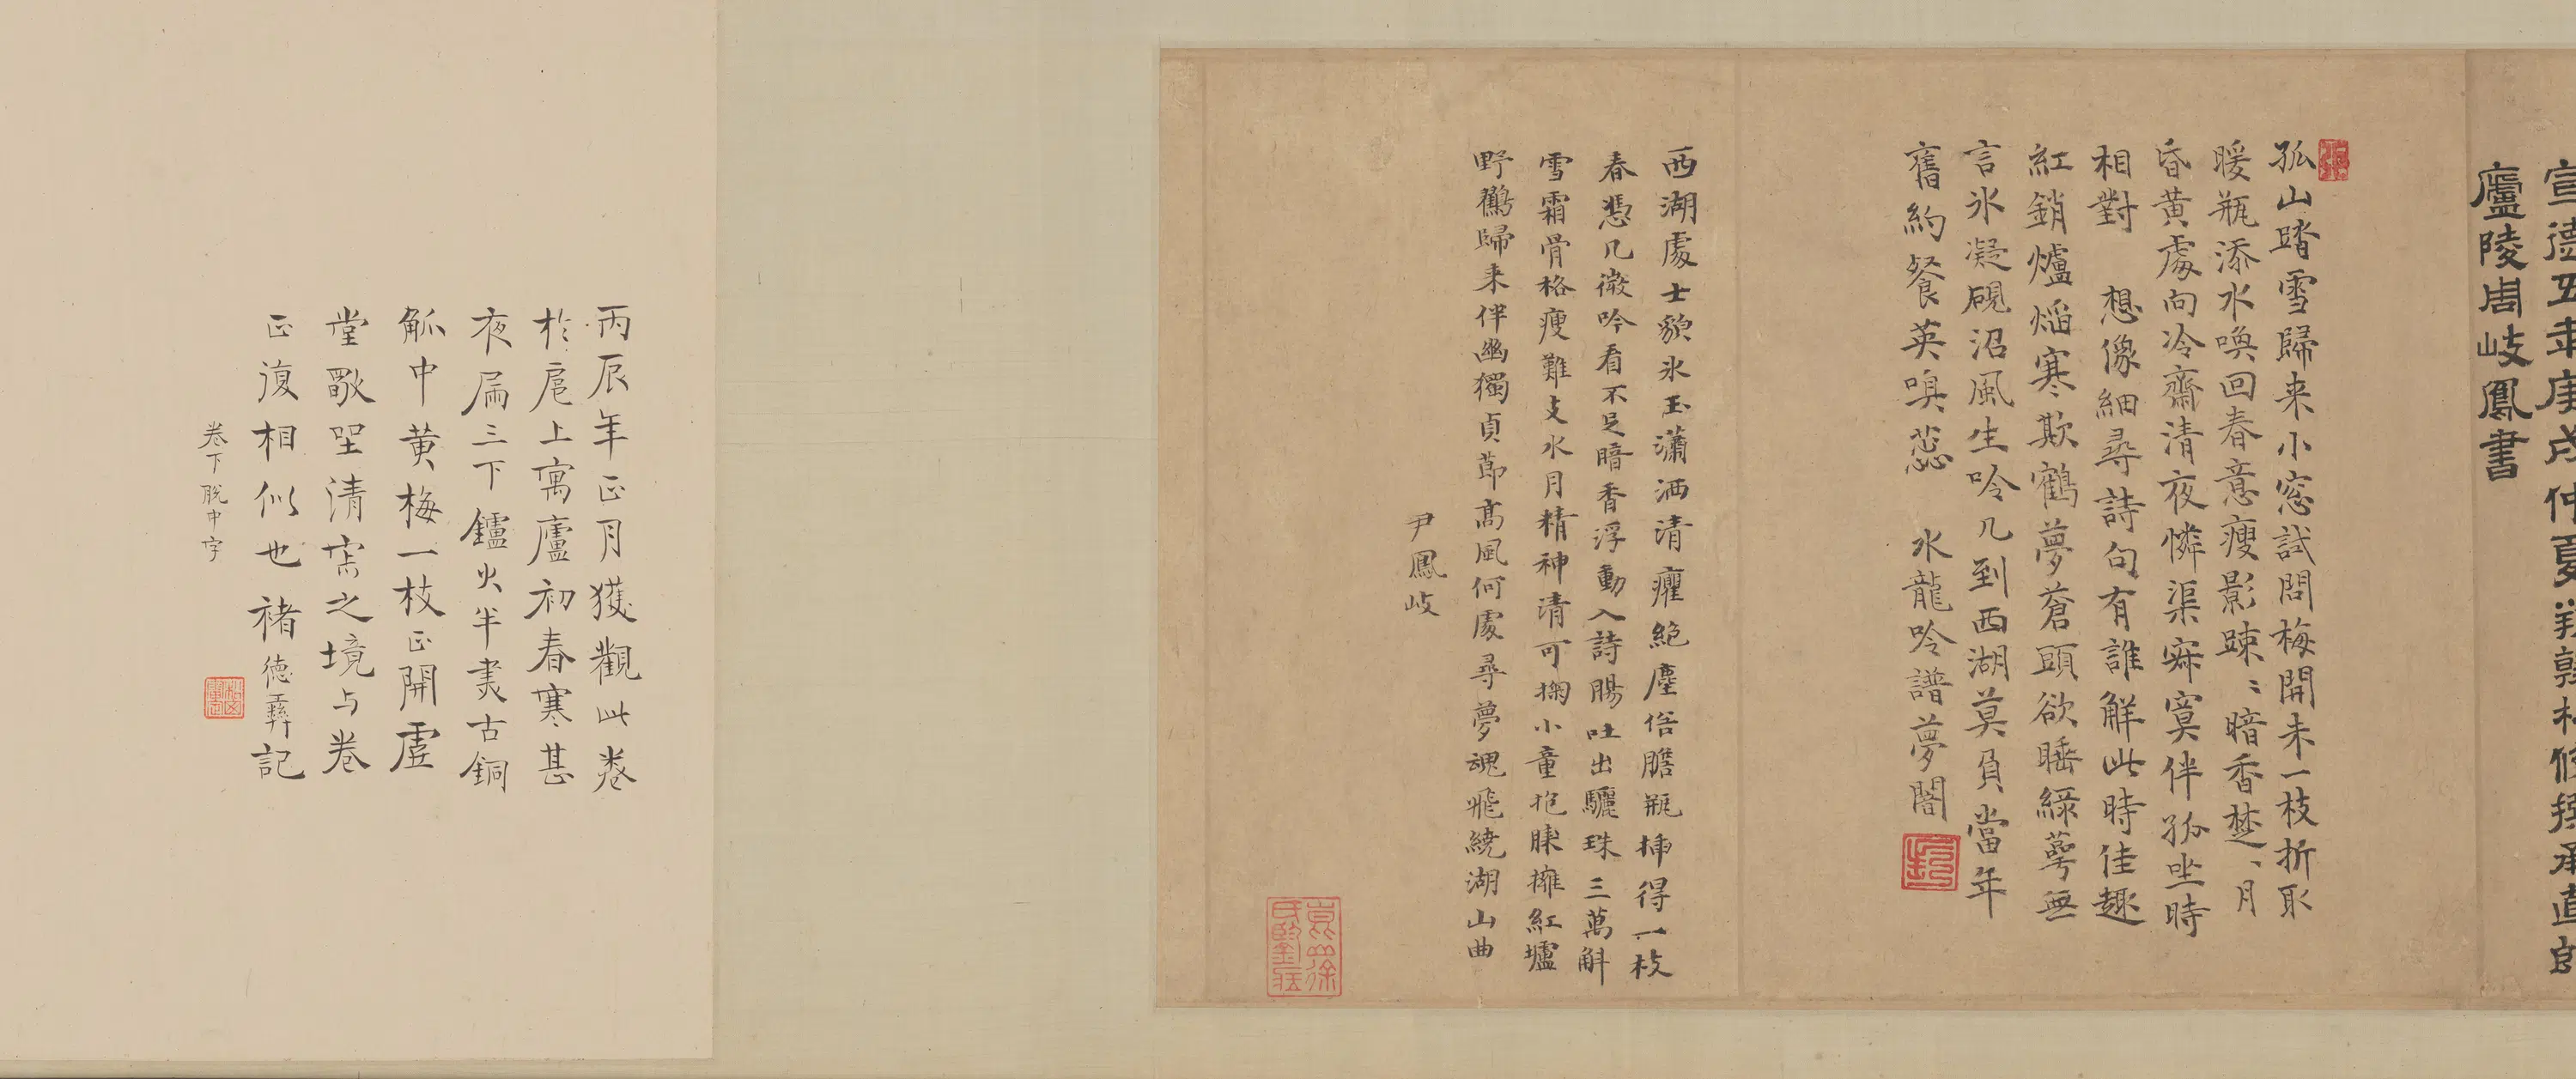 宣德五年庚戌仲夏
廬陵周岐鳳書
孤山踏雪歸来小窓試問梅開未一枝折取
暖瓶添水喚回春意瘦影踈〻暗香楚〻月
昏黃處向冷齋清夜憐渠寂寞伴孤坐時
相對 想像細尋詩句有誰解此時佳趣
紅銷爐燄寒欺鶴夢蒼頭欲睡綠萼無
言氷凝硯沼風生吟几到西湖莫負當年
舊約餐英嗅蕊 水龍吟譜夢闇
西湖處士貌氷玉瀟洒清癯絕塵俗膽瓶揷得一枝
春憑几微吟看不足暗香浮動入詩腸吐出驪珠三萬斛
雪霜骨格瘦難支水月精神清可掬小童抱膝擁紅爐
野鶴歸来伴幽獨貞節高風何處尋夢魂飛繞湖山曲
尹鳳岐
丙辰年正月獲觀此卷
於扈上寓廬初春寒甚
夜漏三下鑪火半烬古銅
觚中黄梅一枝正開虛
堂默坐清寂之境与卷
正復相似也褚德彝記
卷下脫中字